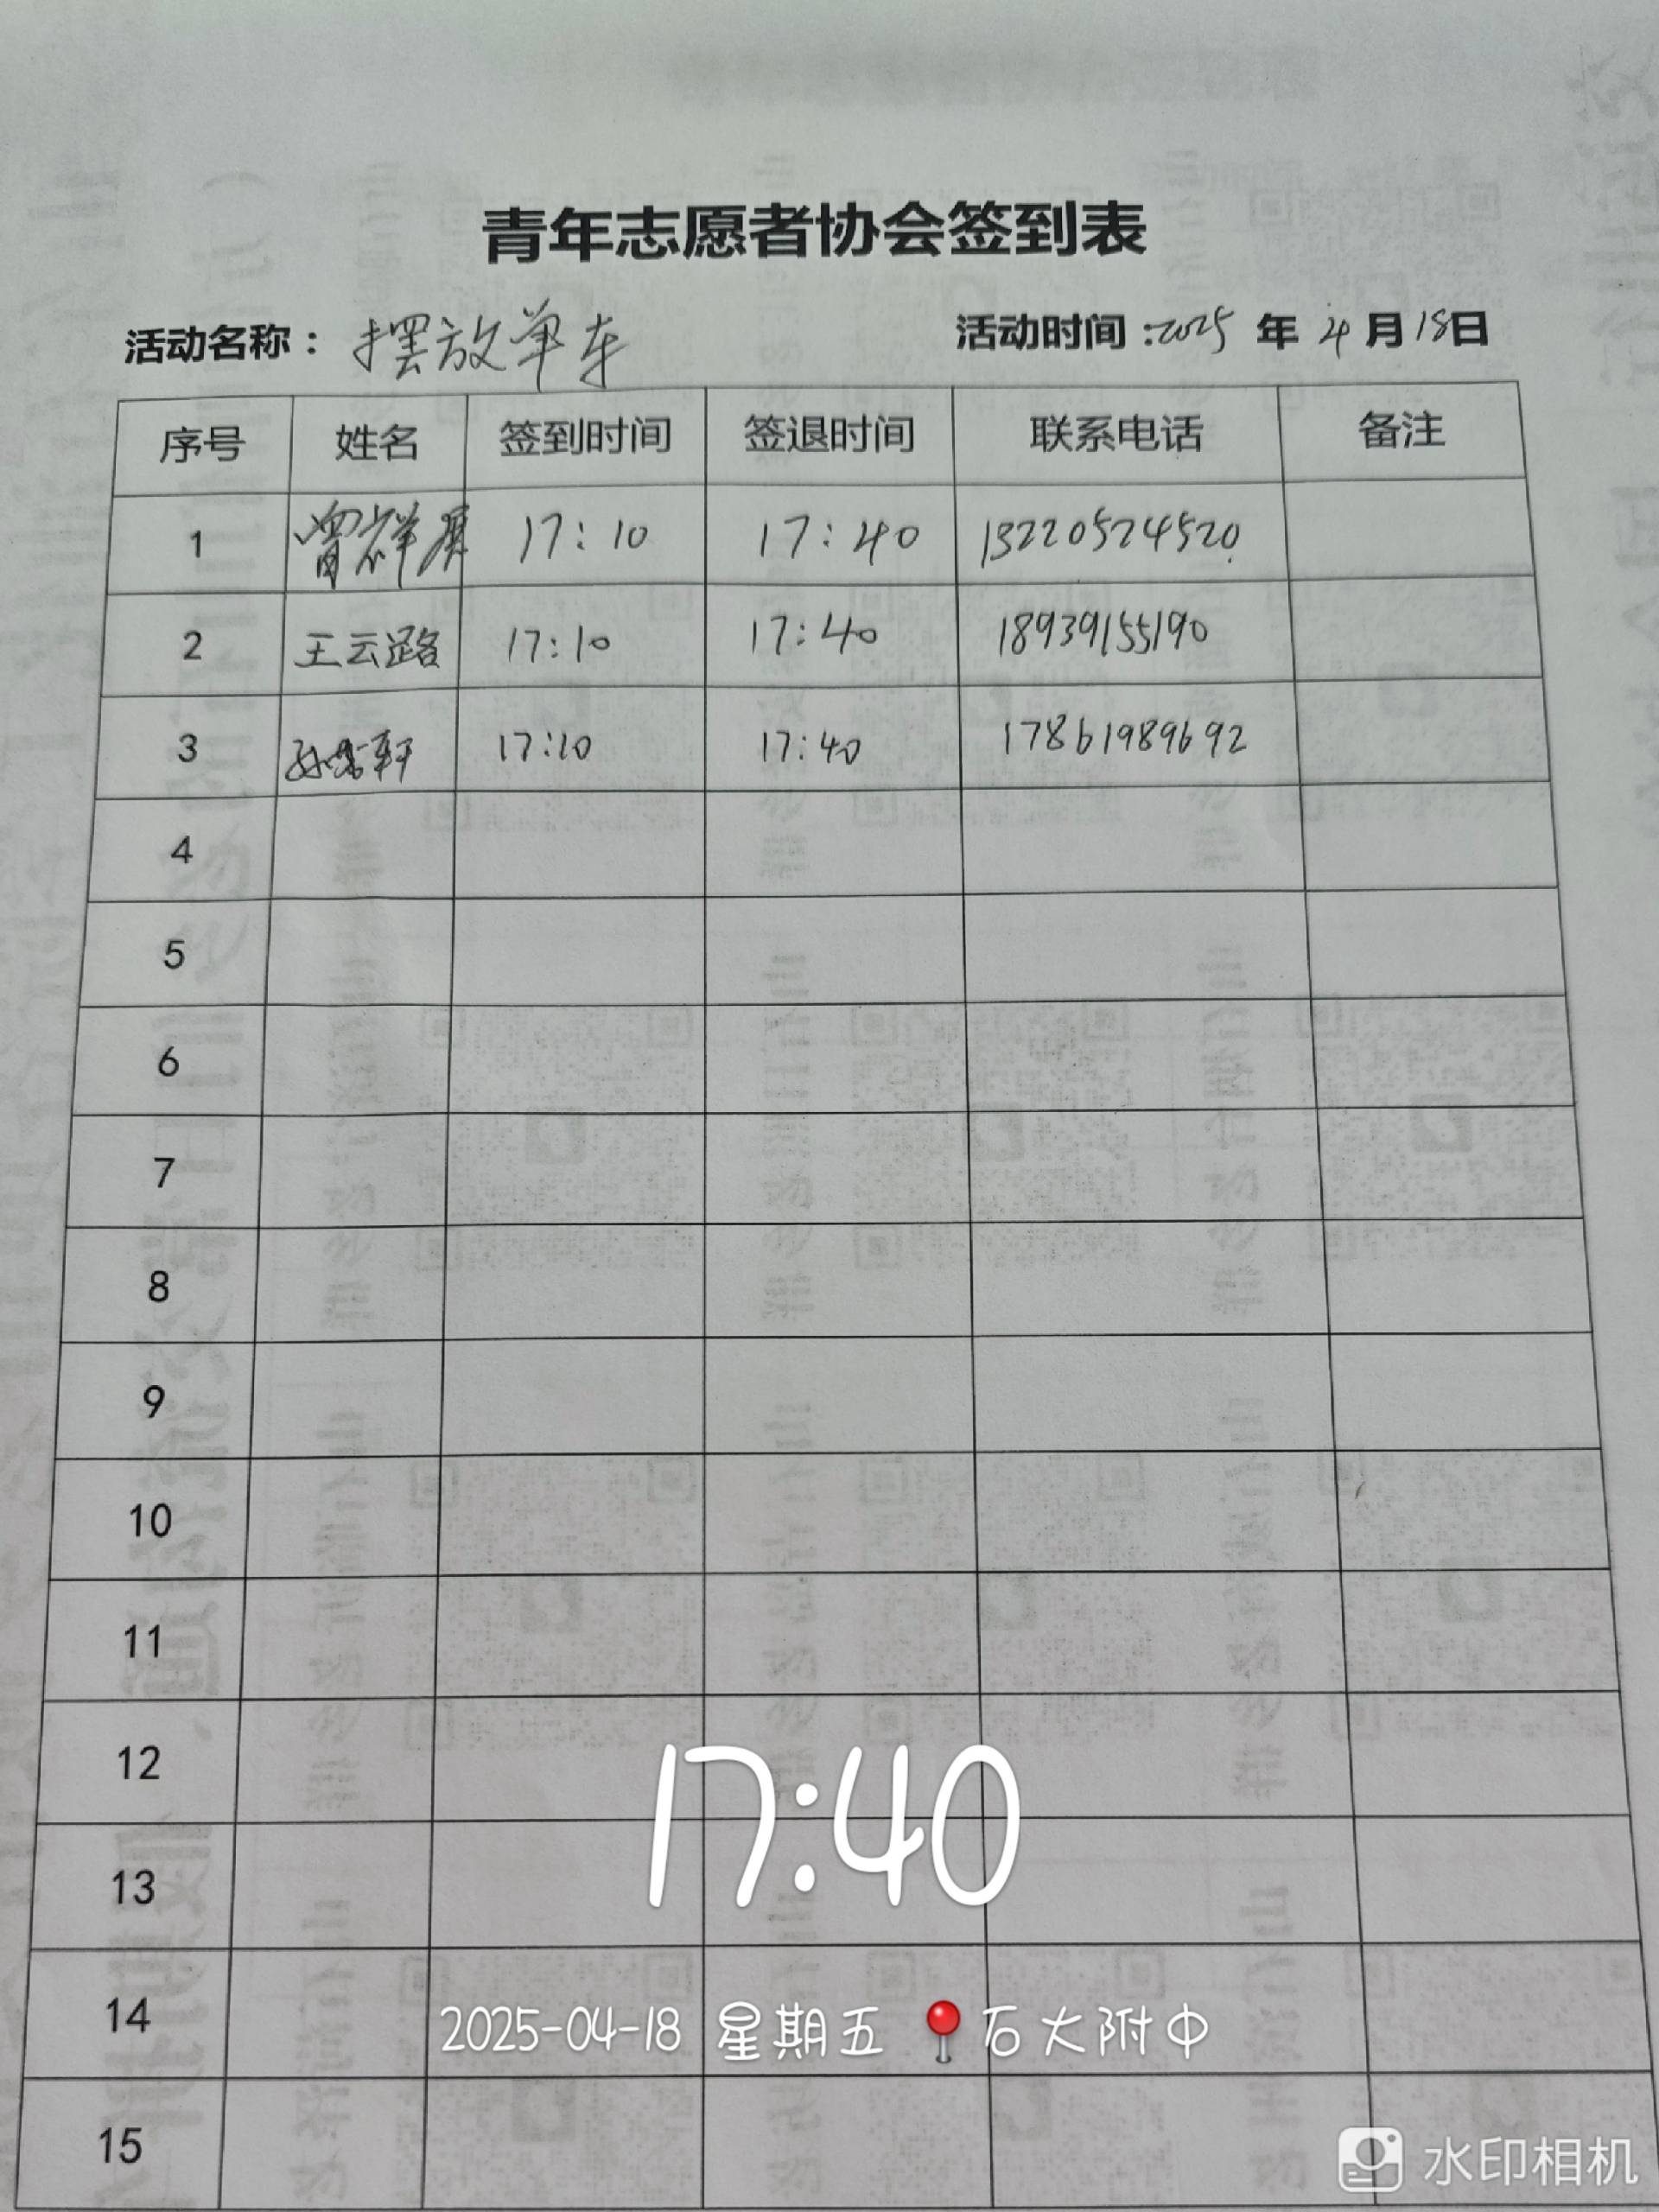 青年志愿者协会签到表
活动名称：摆放单车 活动时间：2025 年 4 月 18日
序号 姓名 签到时间 签退时间 联系电话 备注
1 曾祥 17:10 17:40 13220524520
2 王云路 17:10 17:40 18939155190
3 孙 轩 17:10 17:40 17861989692
4
5
6
7
8
9
10
11
12
17:40
13
14
2025-04-18 星期五 石大附中
15
水印相机